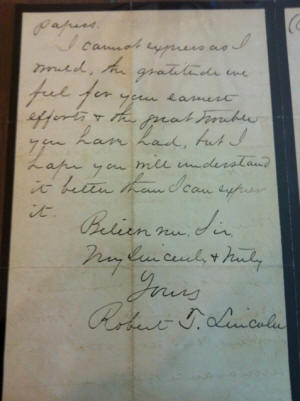 papers.
I cannot express as I
would, the gratitude we
feel for your earnest
efforts & the great trouble
you have had, but I
hope you will understand
it better than I can express
it.
Believe me, Sir,
Very Sincerely & truly
Yours
Robert T. Lincoln